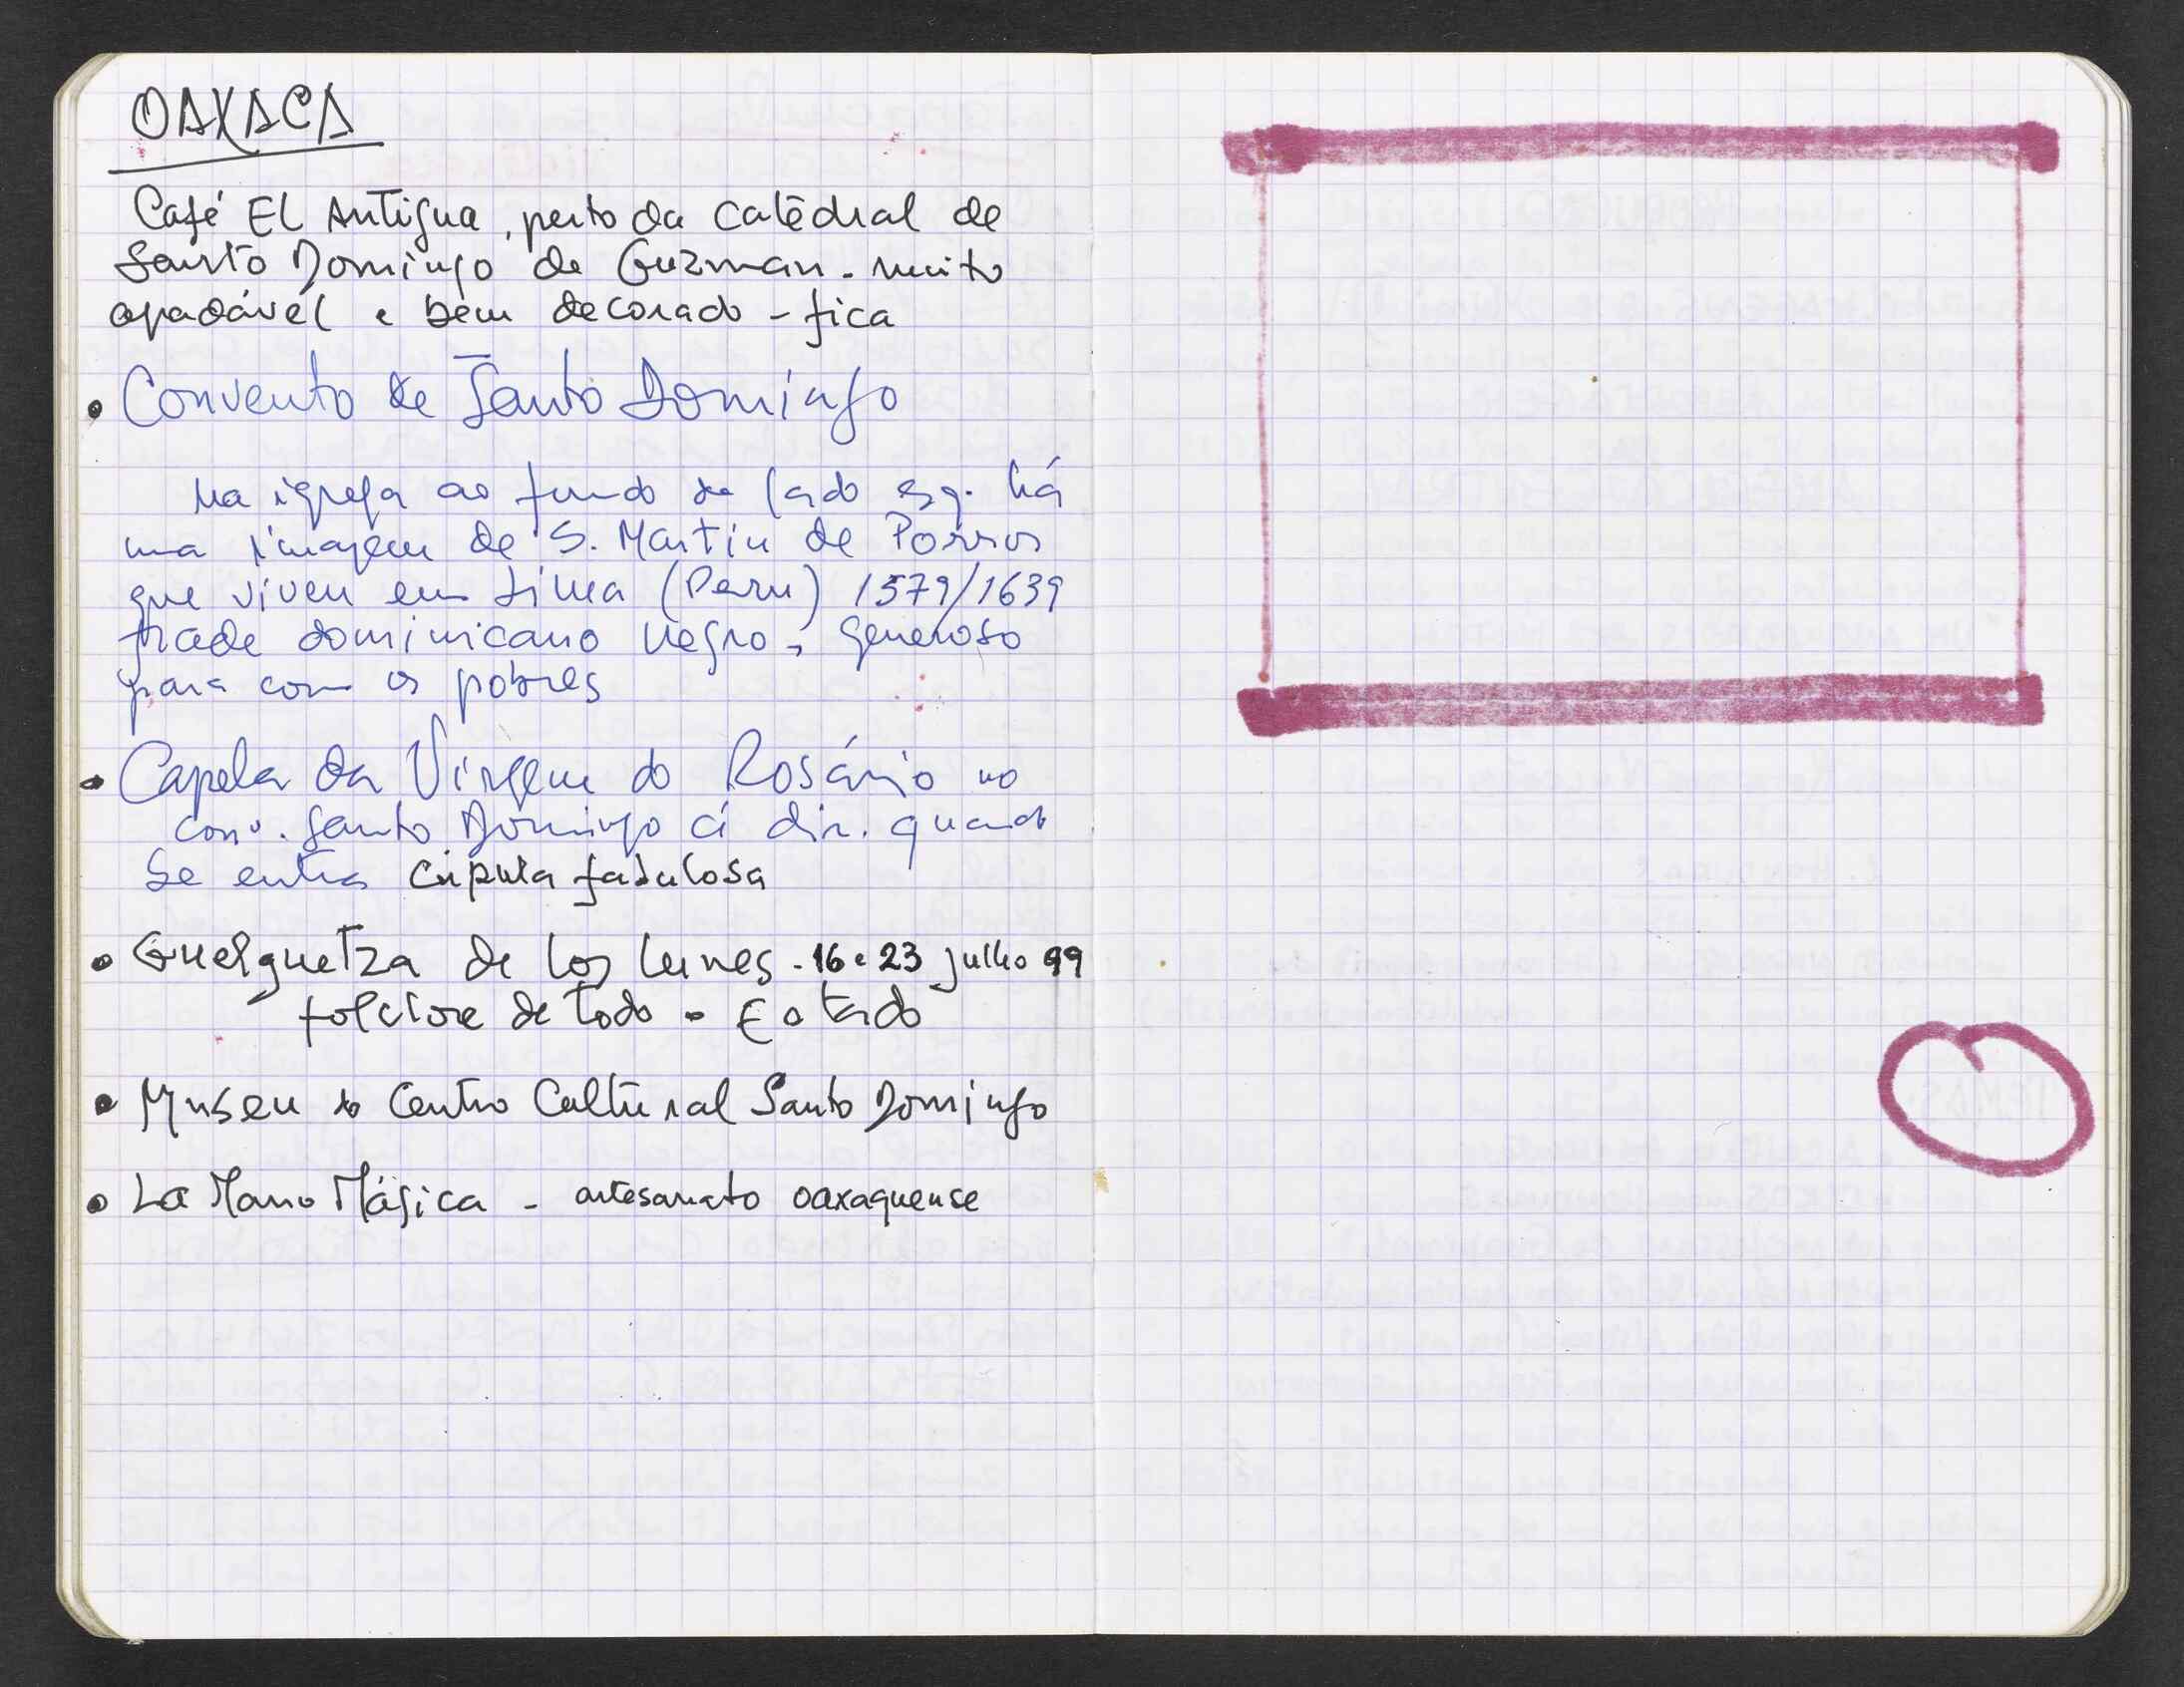 OAXACA
Café El Antigua, perto da catedral de
Santo Domingo de Guzman - muito
agradável e bem decorado - fica
• Convento de Santo Domingo
Na igreja ao fundo de lado esq. há
uma imagem de S. Martin de Porres
que viveu em Lima (Peru) 1579/1639
frade dominicano negro, generoso
para com os pobres
• Capela da Virgem do Rosário no
conv. Santo Domingo á dir. quando
se entra cúpula fabulosa
• Guelguetza de los lunes - 16 e 23 julho 99
folclore de todo o Estado
• Museu do Centro Cultural Santo Domingo
• La Mano Mágica - artesanato oaxaquense